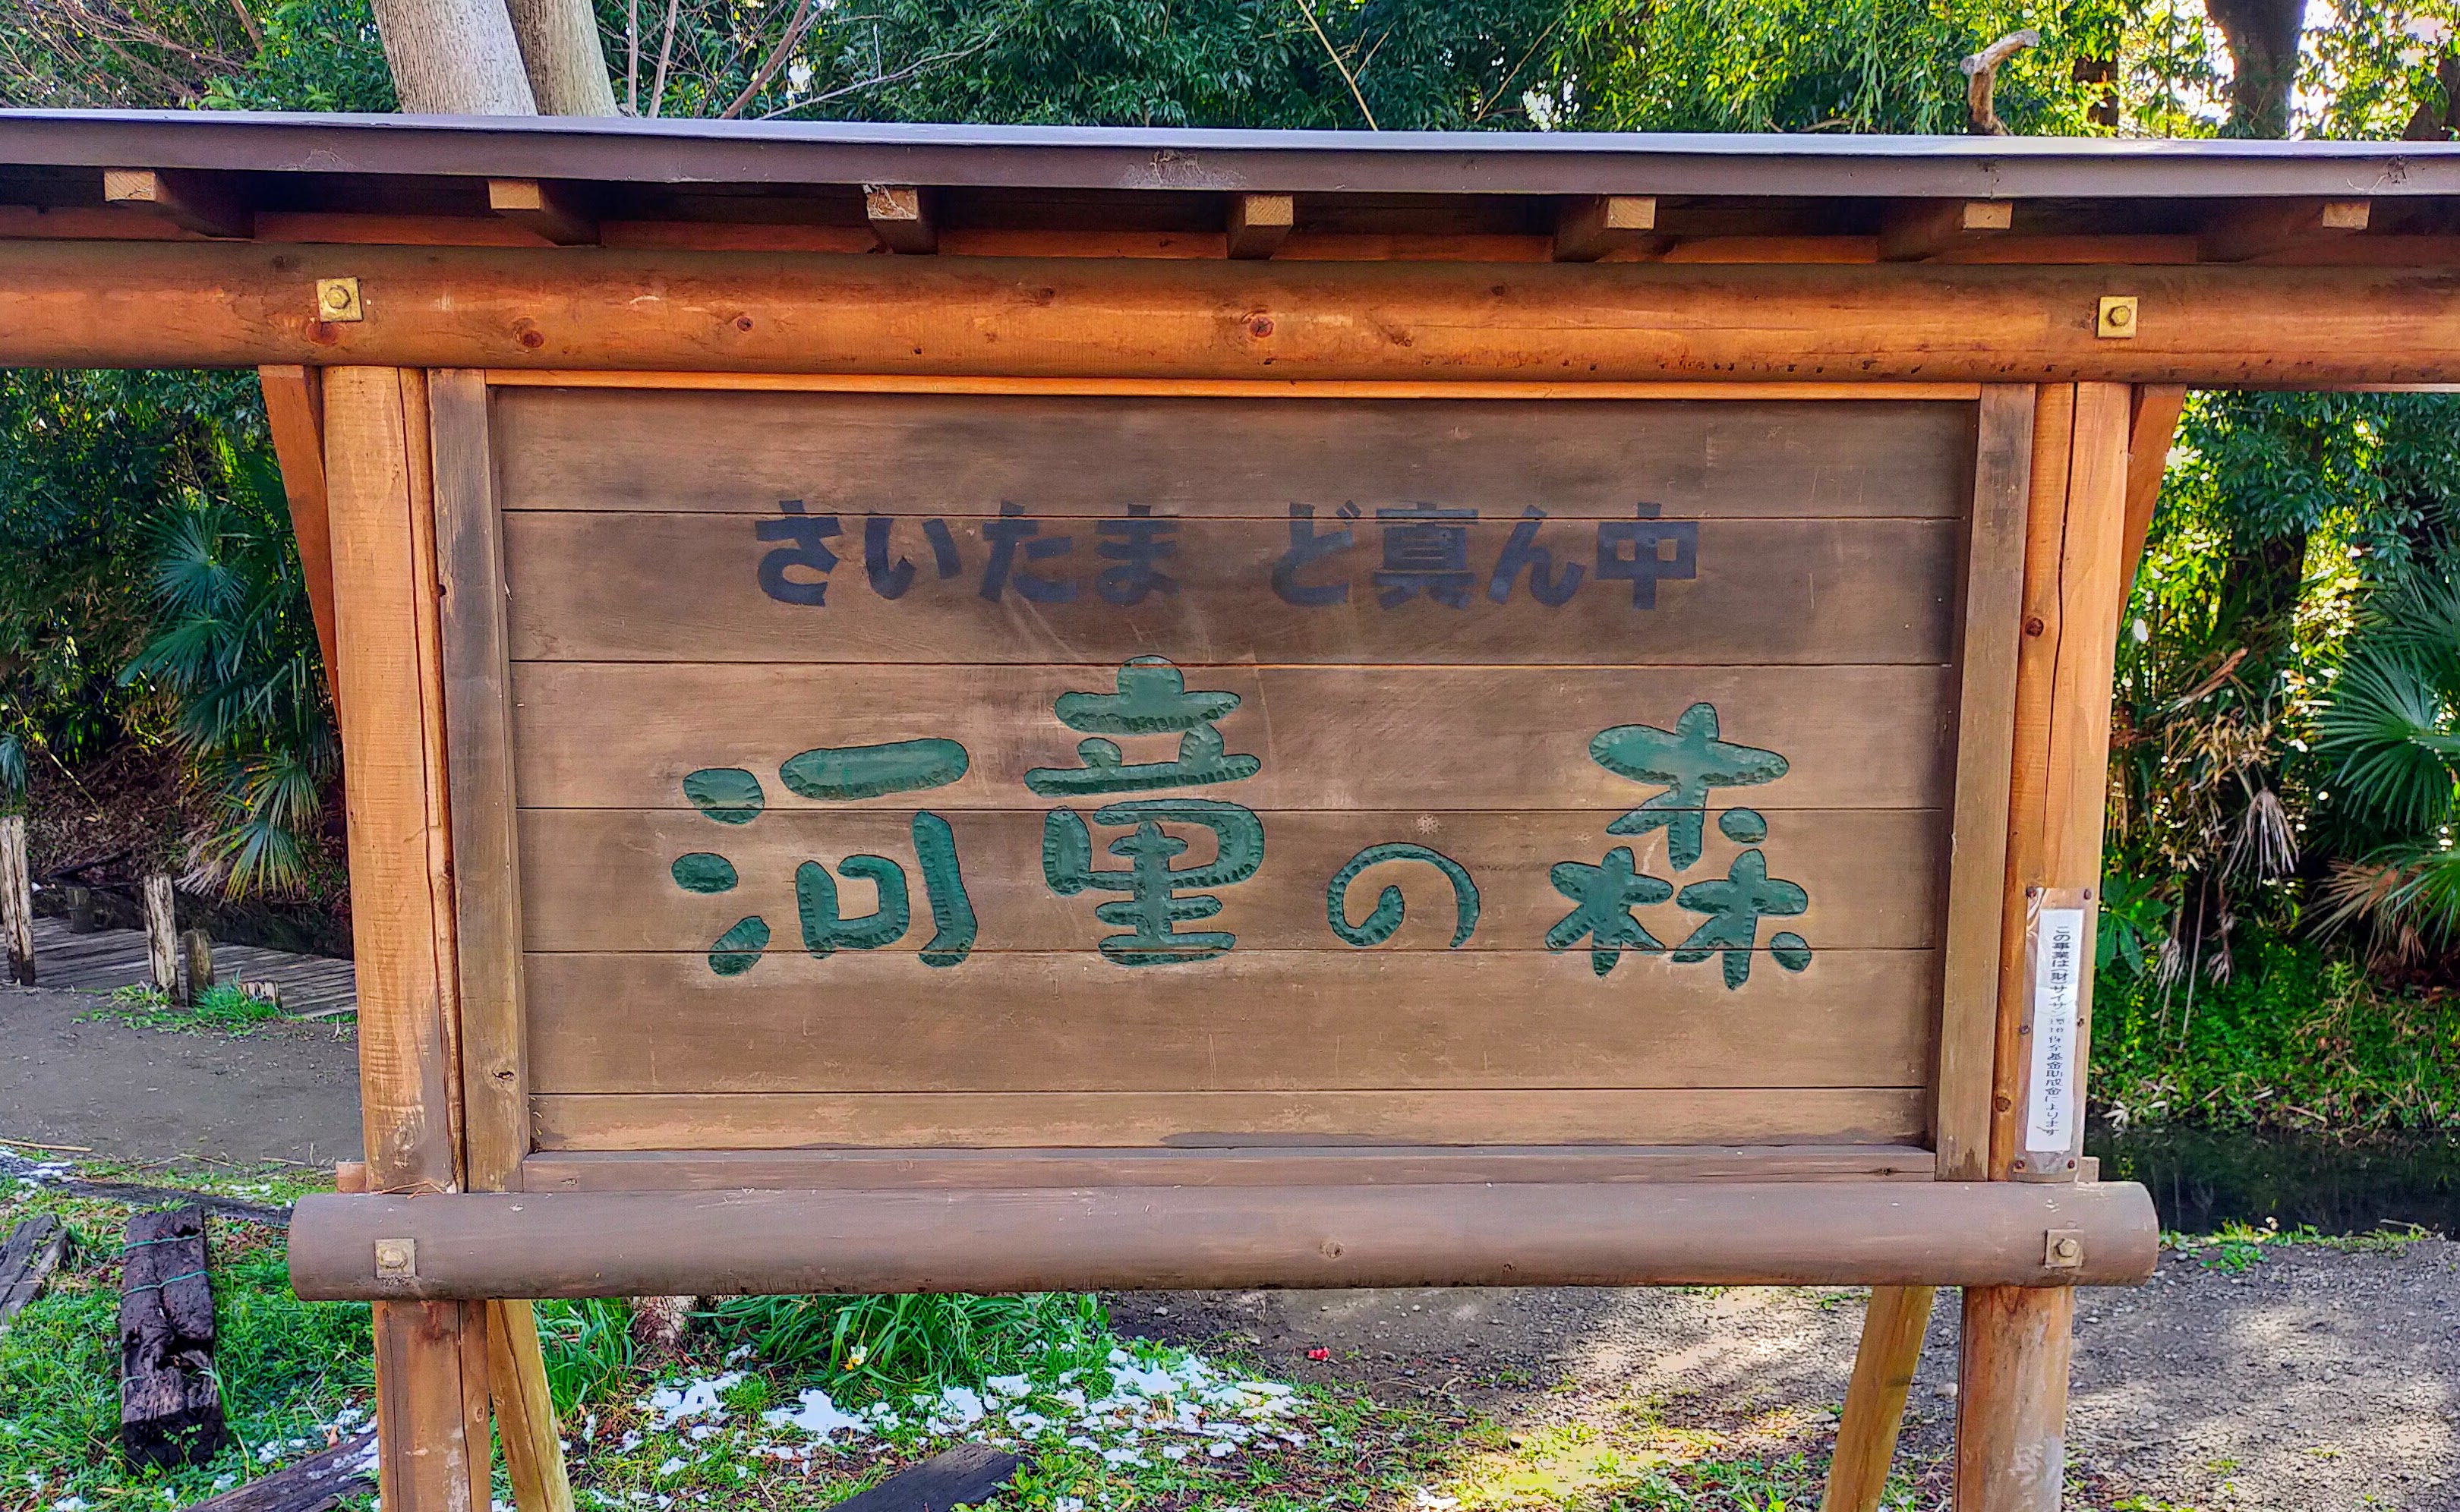 さいたま ど真ん中
河童の森
この事業は(財)サイサン環境保全基金助成金によります